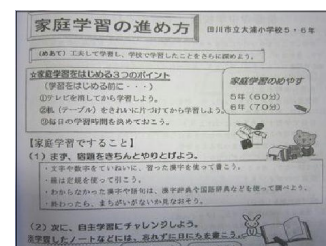 家庭学習の進め方 田川市立大浦小学校5・6年
(めあて) 工夫して学習し、学校で学習したことをさらに深めよう。
☆家庭学習をはじめる3つのポイント
(学習をはじめる前に・・・)
①テレビを消してから学習しよう。
②机(テーブル)をきれいに片づけてから学習しよう。
③毎日の学習時間を決めておこう。
家庭学習のめやす
5年(60分)
6年(70分)
【家庭学習ですること】
(1) まず、宿題をきちんとやりとげよう。
・文字や数字をていねいに、習った漢字を使って書こう。
・線は定規を使って引こう。
・わからなかった漢字や語句は、漢字辞典や国語辞典などを使って調べよう。
・終わったら、まちがいがないか見なおそう。
(2) 次に、自主学習にチャレンジしよう。
学習したノートなどには、忘れずに日にちを書こう。